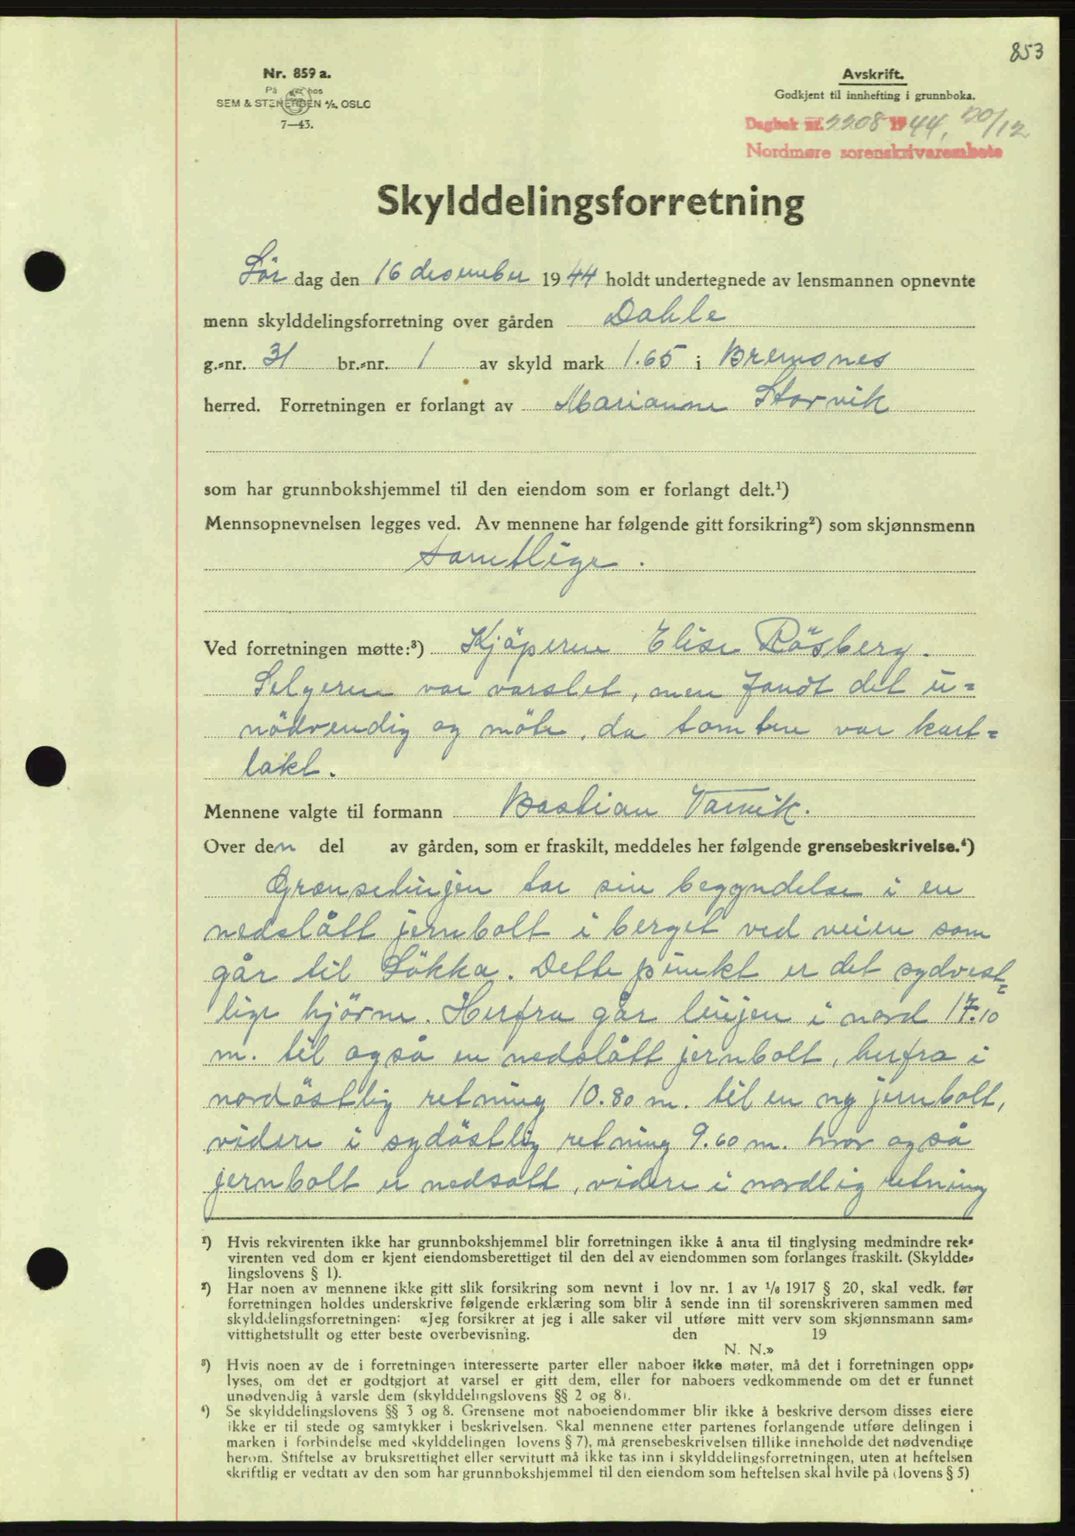 853
Nr. 859 a.
På hos
SEM & STENERSEN A/S, OSLO
7—43.
Avskrift.
Godkjent til innhefting i grunnboka.
Dagbok nr. 2208 1944, 20/12
Nordmøre sorenskrivarembete
Skylddelingsforretning
Lör dag den 16 desember 1944 holdt undertegnede av lensmannen opnevnte
menn skylddelingsforretning over gården Dahle
g.-nr. 31 br.-nr. 1 av skyld mark 1.65 i Bremsnes
herred. Forretningen er forlangt av Marianne Storvik
som har grunnbokshjemmel til den eiendom som er forlangt delt.¹)
Mennsopnevnelsen legges ved. Av mennene har følgende gitt forsikring²) som skjønnsmenn
samtlige.
Ved forretningen møtte:³) Kjöperen Elise Rösberg.
Selgeren var varslet, men fandt det u=
nödvendig og möte, da tomten var kart=
lakt.
Mennene valgte til formann Bastian Varvik.
Over den del av gården, som er fraskilt, meddeles her følgende grensebeskrivelse.⁴)
Grenselinjen tar sin begyndelse i en
nedslått jernbolt i berget ved veien som
går til Lökka. Dette punkt er det sydvest=
lige hjörne. Herfra går linjen i nord 17.10
m. til også en nedslått jernbolt, herfra i
nordöstlig retning 10.80 m. til en ny jernbolt,
videre i sydöstlig retning 9.60 m. hvor også
jernbolt er nedsatt, videre i nordlig retning
¹) Hvis rekvirenten ikke har grunnbokshjemmel blir forretningen ikke å anta til tinglysing medmindre rek-
virenten ved dom er kjent eiendomsberettiget til den del av eiendommen som forlanges fraskilt. (Skyldde-
lingslovens § 1).
²) Har noen av mennene ikke gitt slik forsikring som nevnt i lov nr. 1 av 1/6 1917 § 20, skal vedk. før
forretningen holdes underskrive følgende erklæring som blir å sende inn til sorenskriveren sammen med
skylddelingsforretningen: «Jeg forsikrer at jeg i alle saker vil utføre mitt verv som skjønnsmann sam-
vittighetsfullt og etter beste overbevisning. den 19
N. N.»
³) Hvis noen av de i forretningen interesserte parter eller naboer ikke møter, må det i forretningen opp-
lyses, om det er godtgjort at varsel er gitt dem, eller for naboers vedkommende om det er funnet
unødvendig å varsle dem (skylddelingslovens §§ 2 og 8).
⁴) Se skylddelingslovens §§ 3 og 8. Grensene mot naboeiendommer blir ikke å beskrive dersom disses eiere
ikke er til stede og samtykker i beskrivelsen. Skal mennene etter partenes forlangende utføre delingen i
marken i forbindelse med skylddelingen (lovens § 7), må grensebeskrivelsen tillike inneholde det nødvendige
herom. Stiftelse av bruksrettighet eller servitutt må ikke tas inn i skylddelingsforretningen, uten at heftelsen
skriftlig er vedtatt av den som har grunnbokshjemmel til den eiendom som heftelsen skal hvile på (lovens § 5)